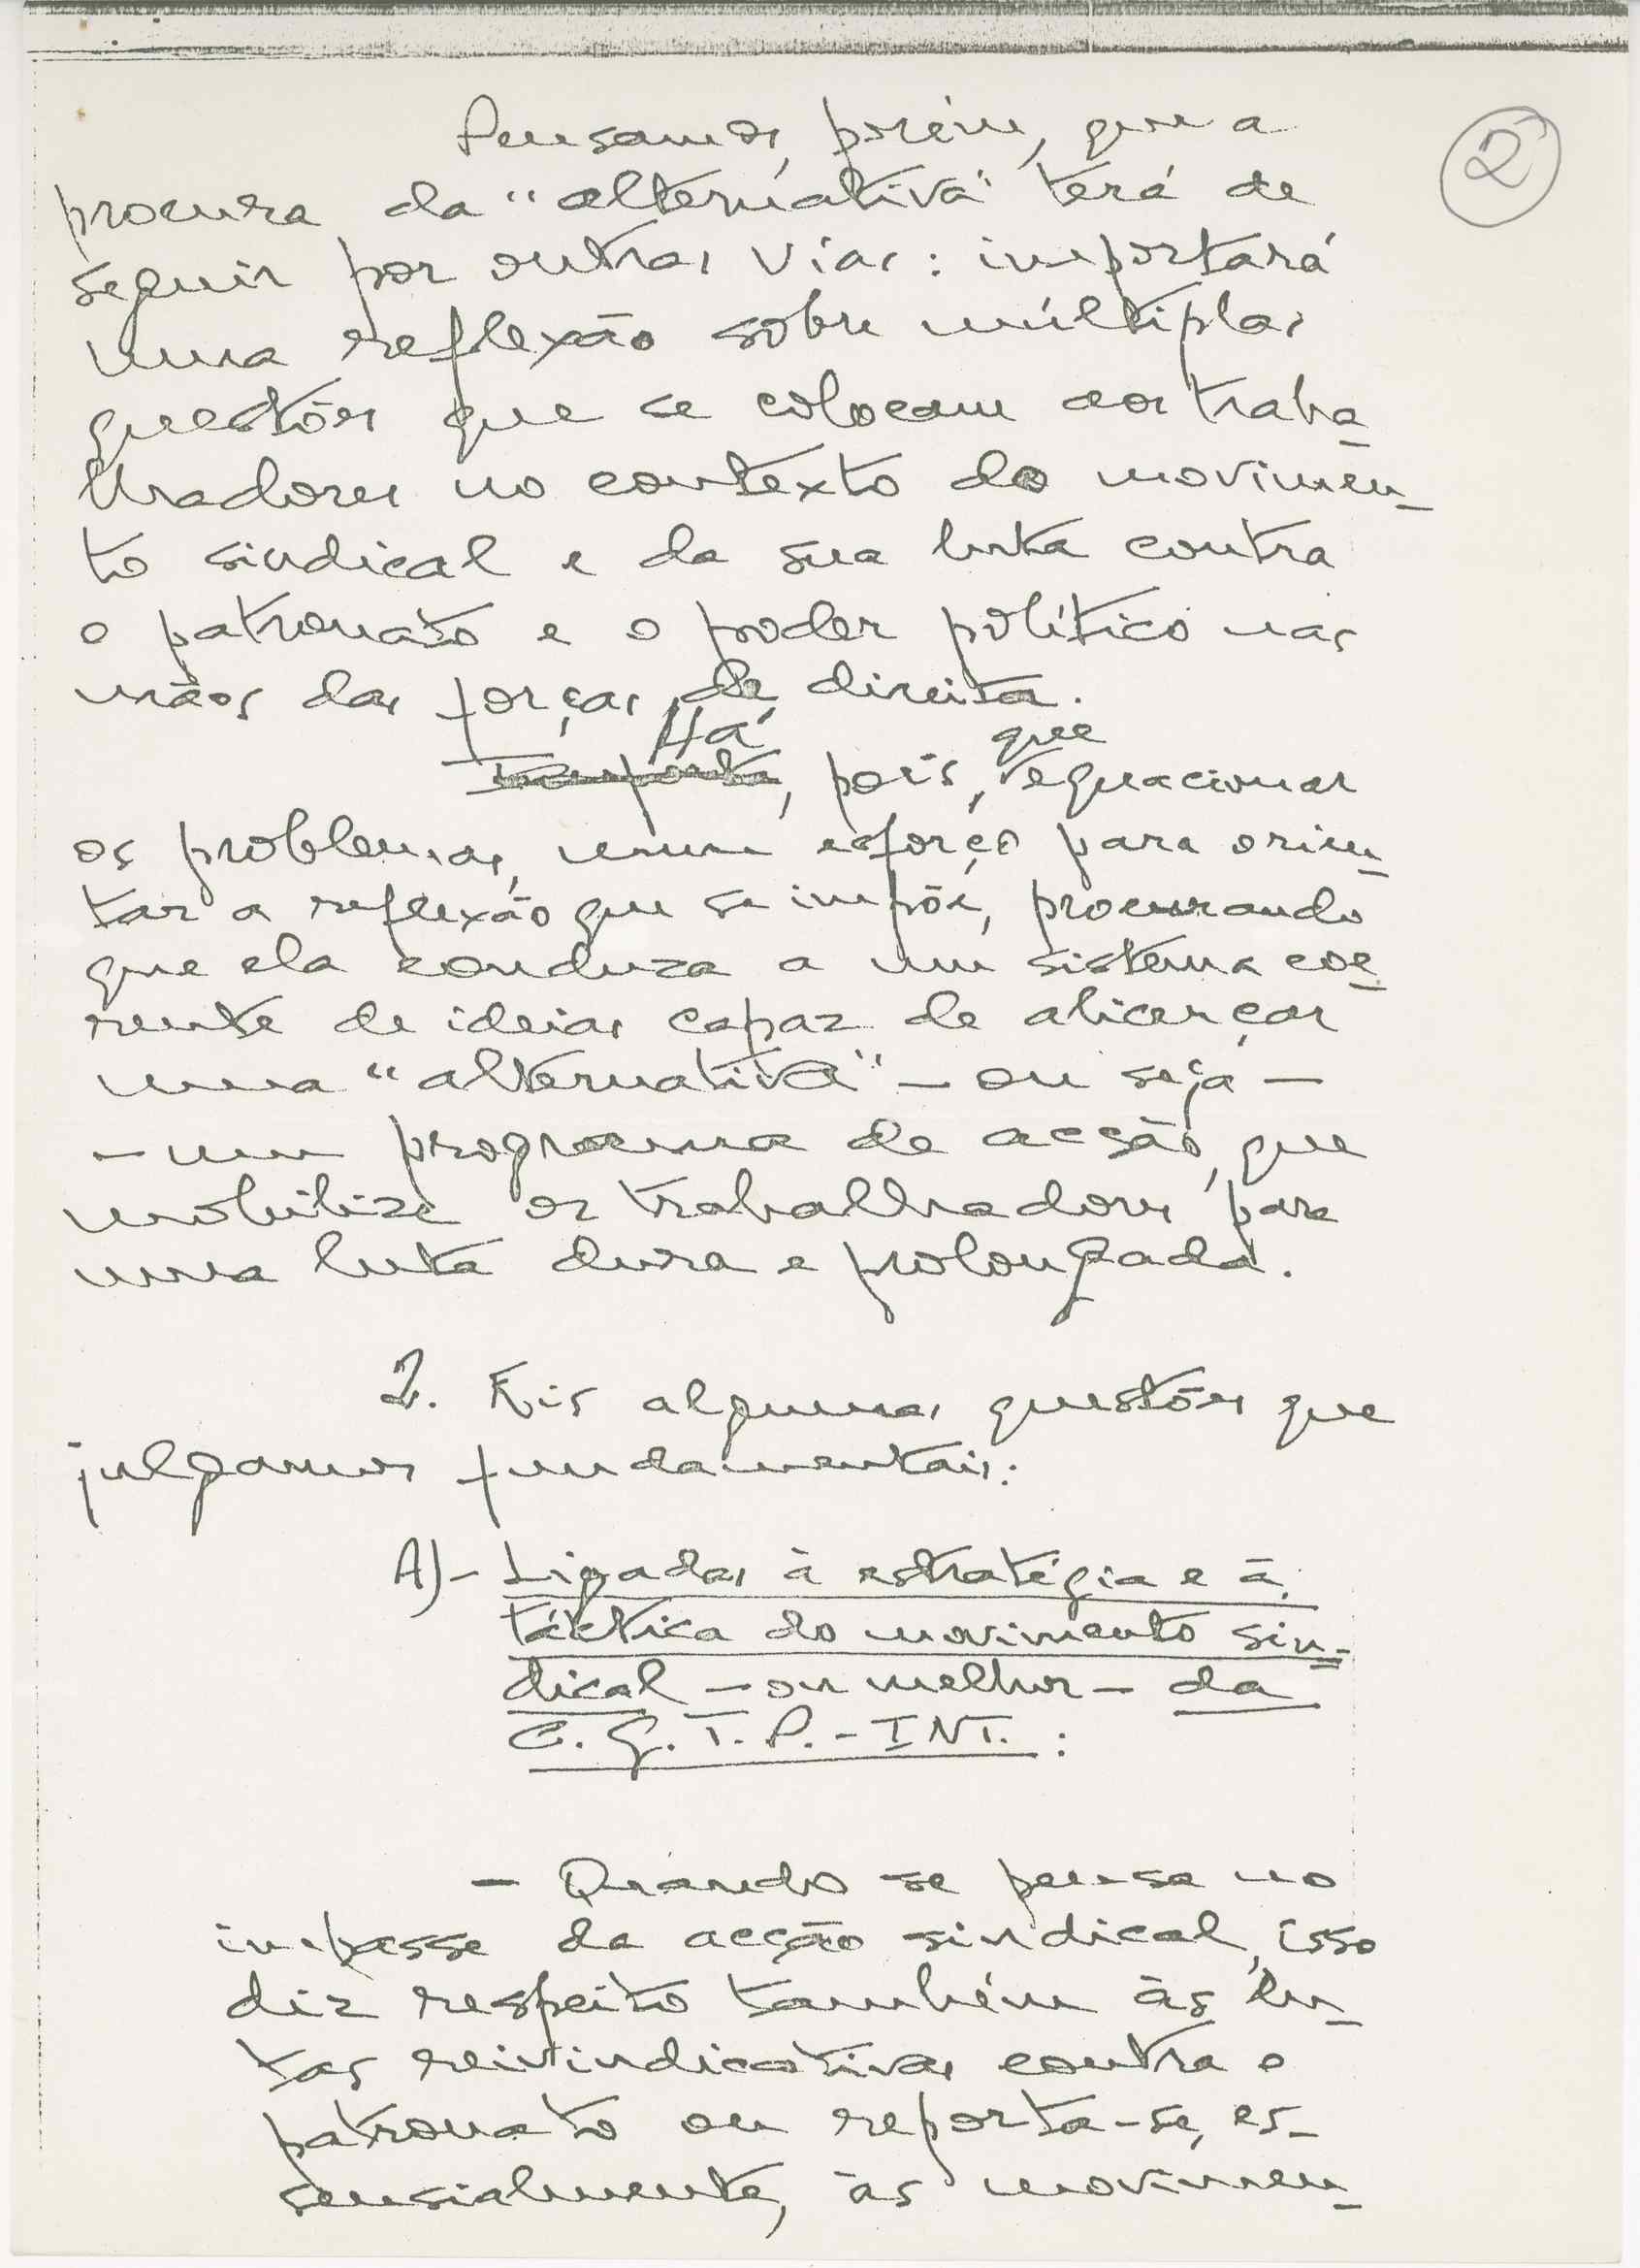 Pensamos, porém, que a
2
procura da "alternativa" terá de
seguir por outras vias: importará
uma reflexão sobre múltiplas
questões que se colocam aos traba-
lhadores no contexto do movimen-
to sindical e da sua luta contra
o patronato e o poder político nas
mãos das forças de direita.
Há que
Importa, pois, equacionar
os problemas, num esforço para orien-
tar a reflexão que se impõe, procurando
que ela conduza a um sistema coe-
rente de ideias capaz de alicerçar
uma "alternativa" - ou seja -
- um programa de acção, que
mobilize os trabalhadores para
uma luta dura e prolongada.
2. Eis algumas questões que
julgamos fundamentais:
A) - Ligadas à estratégia e à
táctica do movimento sin-
dical - ou melhor - da
C.G.T.P. - INT. :
- Quando se pensa no
impasse da acção sindical, isso
diz respeito também às lu-
tas reivindicativas contra o
patronato ou reporta-se, es-
sensialmente, às movimen-